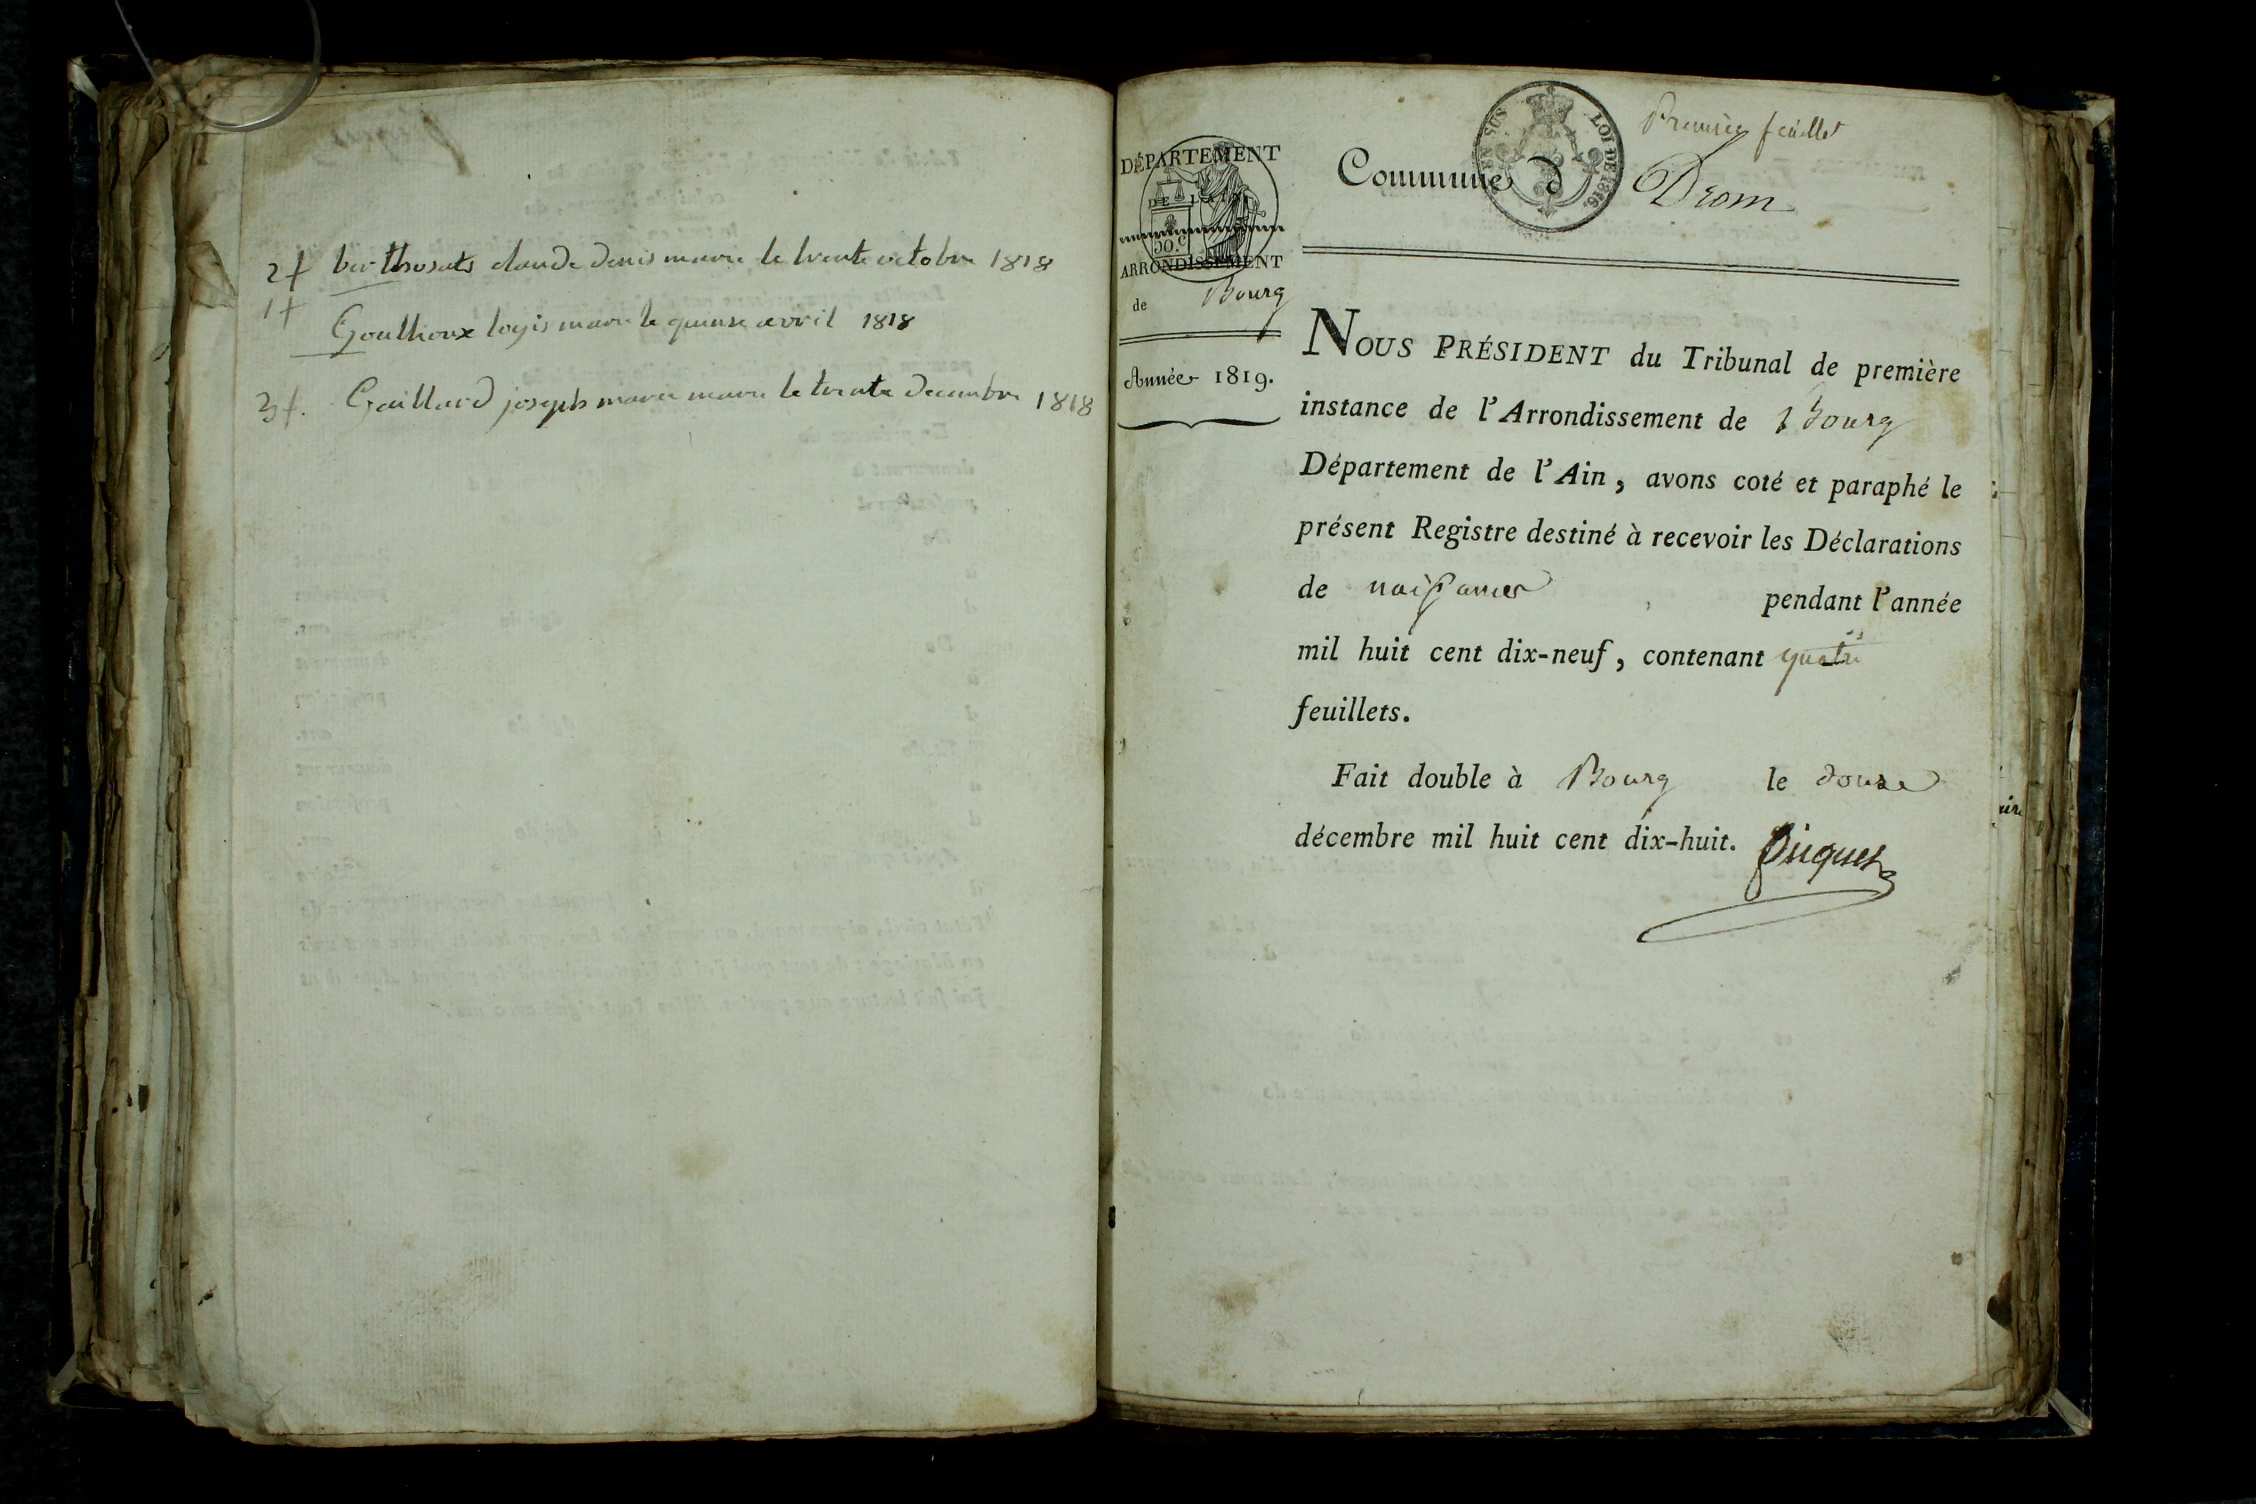 2f berthosats claude denis marie le trente octobre 1818
1f
Goulhoux logis marie le quinse avril 1818
3f. Gaillard joseph marie marie le trente decembre 1818
Premier feuillet
EN SUS LOI DE 1816.
DÉPARTEMENT
DE L'AIN
50.c
ARRONDISSEMENT
de Bourg
Année 1819.
Commune d Drom
NOUS PRÉSIDENT du Tribunal de première
instance de l'Arrondissement de Bourg
Département de l'Ain, avons coté et paraphé le
présent Registre destiné à recevoir les Déclarations
de naissances pendant l'année
mil huit cent dix-neuf, contenant quatre
feuillets.
Fait double à Bourg le douze
décembre mil huit cent dix-huit. Piquet